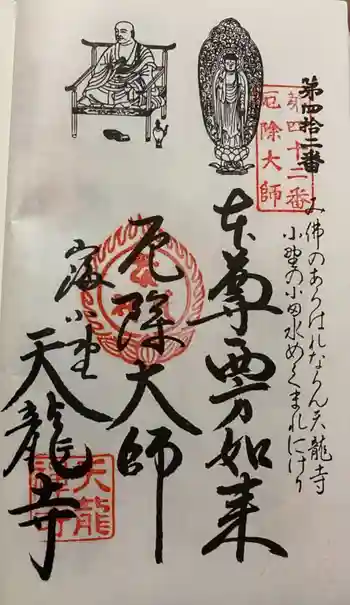 第四拾二番
第四十二番
厄除大師
み佛のあらはれならん天龍寺
小野の小田水めぐまれにけり
本尊西方如来
厄除大師
天龍寺
天龍